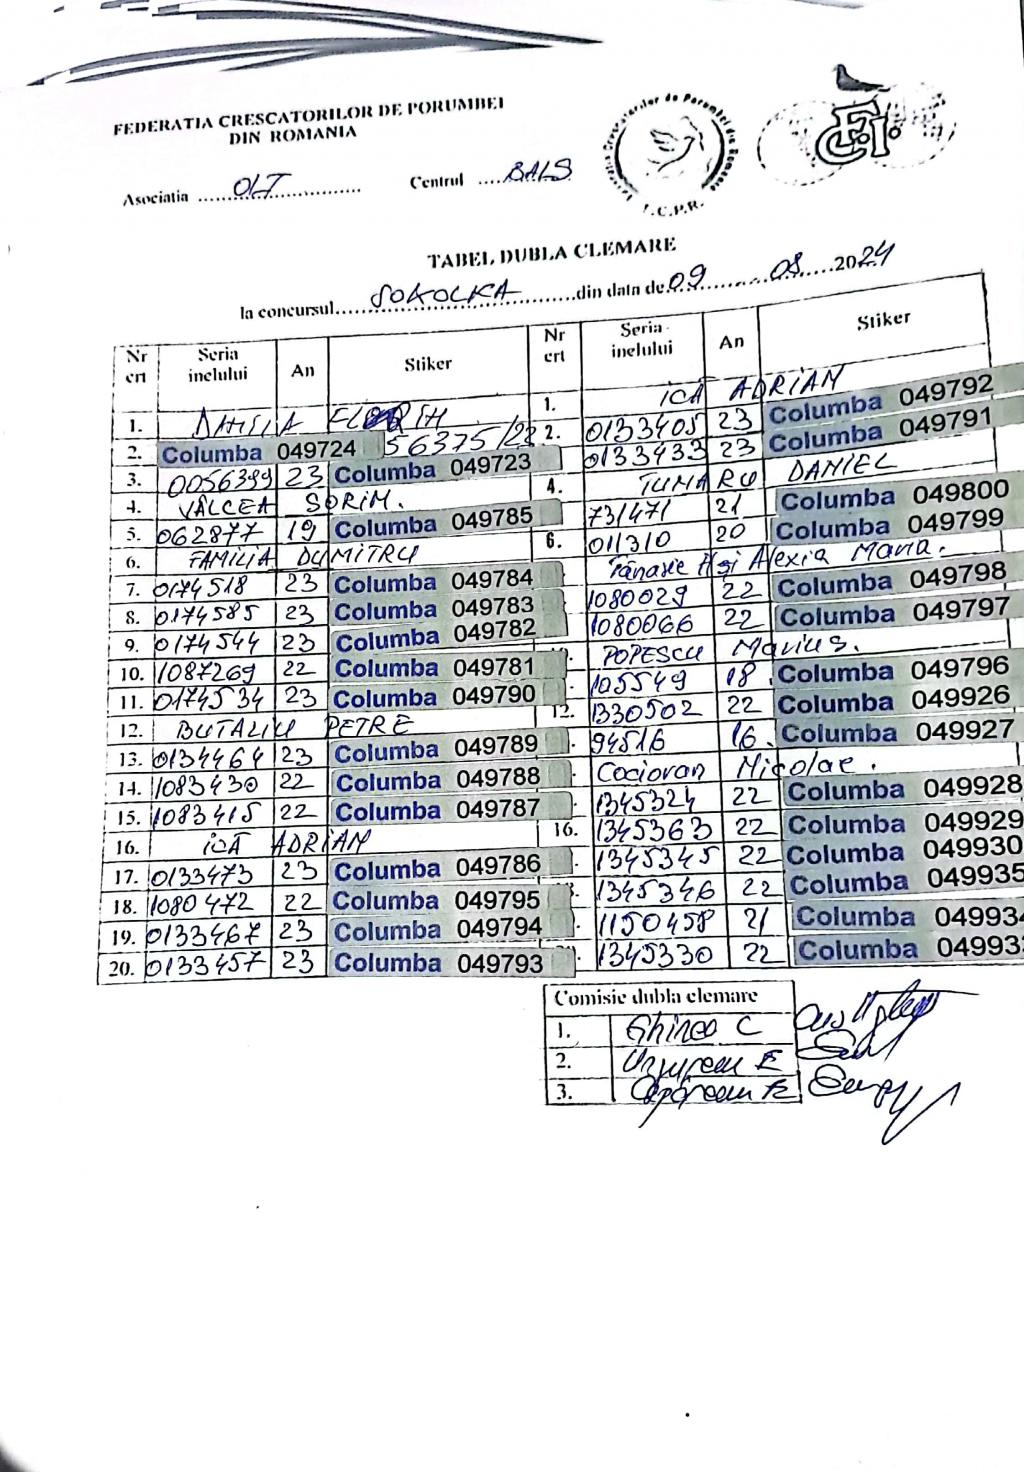 FEDERATIA CRESCATORILOR DE PORUMBEI
DIN ROMANIA
Asociatia OLT Centrul BALS
F.C.P.R.
TABEL DUBLA CLEMARE
la concursul SOKOLKA din data de 09 08 2024
Nr crt Seria inelului An Stiker
1.
2. Columba 049724 56375/22
3. 0056399 23 Columba 049723
4. VÂLCEA SORIM.
5. 062877 19 Columba 049785
6. FAMILIA DUMITRU
7. 0174518 23 Columba 049784
8. 0174585 23 Columba 049783
9. 0174544 23 Columba 049782
10. 1087269 22 Columba 049781
11. 0174534 23 Columba 049790
12. BUTALIU PETRE
13. 0134464 23 Columba 049789
14. 1083430 22 Columba 049788
15. 1083415 22 Columba 049787
16. ICĂ ADRIAN
17. 0133473 23 Columba 049786
18. 1080472 22 Columba 049795
19. 0133467 23 Columba 049794
20. 0133457 23 Columba 049793
Nr crt Seria inelului An Stiker
1. ICĂ ADRIAN
2. 0133405 23 Columba 049792
0133433 23 Columba 049791
4. TUNARU DANIEL
731471 21 Columba 049800
6. 011310 20 Columba 049799
Tănasie și Alexia Maria.
1080029 22 Columba 049798
1080066 22 Columba 049797
POPESCU Marius.
105549 18 Columba 049796
12. 1330502 22 Columba 049926
94516 16 Columba 049927
Cociovan Nicolae.
1345324 22 Columba 049928
16. 1345363 22 Columba 049929
1345345 22 Columba 049930
1345346 22 Columba 049935
1150458 21 Columba 04993
1345330 22 Columba 04993
Comisie dubla clemare
1. Ghinea C
2.
3.